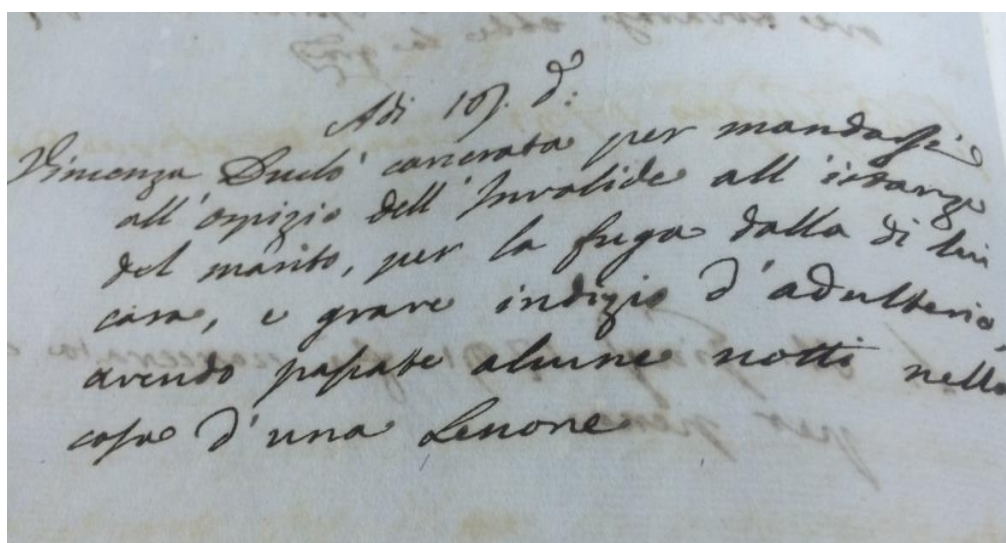 Adi 10). d:
Vincenza Duclò carcerata per mandarsi
all'ospizio dell'Invalide all'istanza
del marito, per la fuga dalla di lui
casa, e grave indizio d'adulterio
avendo passate alcune notti nella
casa d'una Lenone